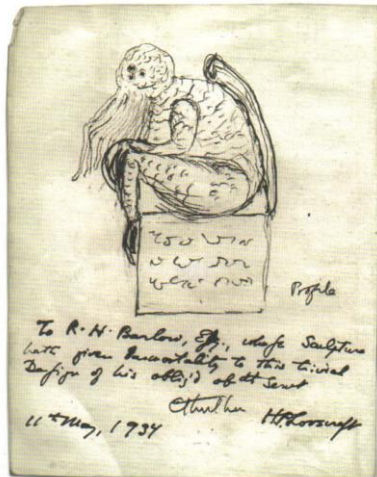 Profile
To R. H. Barlow, Esq., whose Sculpture
hath given Immortality to this trivial
Design of his oblig'd obt Servt
Cthulhu
11th May, 1934
H P Lovecraft